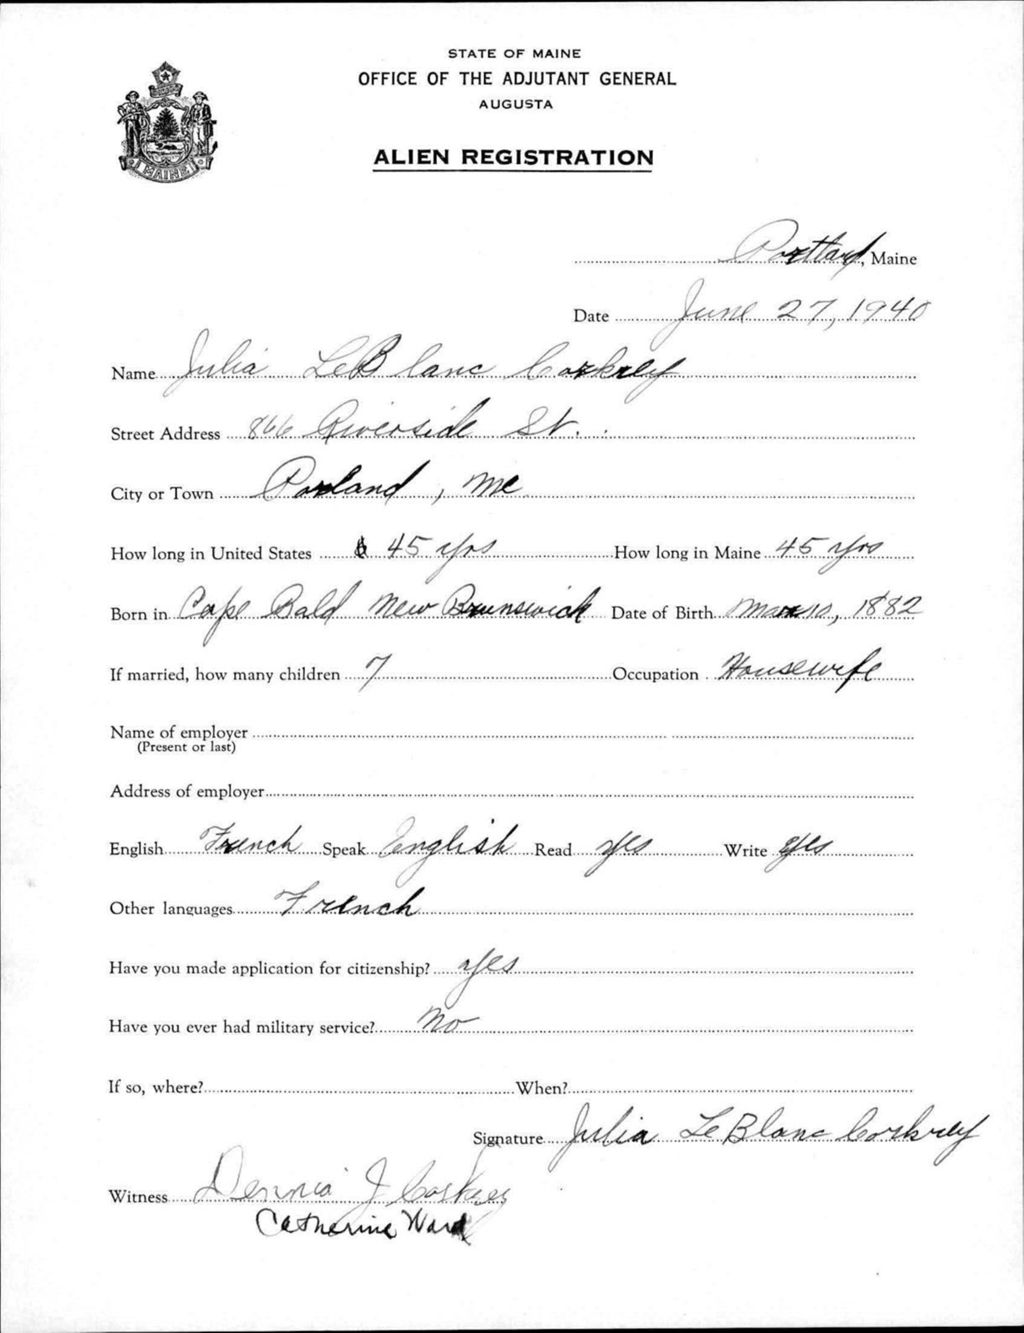 STATE OF MAINE
OFFICE OF THE ADJUTANT GENERAL
AUGUSTA
ALIEN REGISTRATION
MAINE
Portland, Maine
Date June 27, 1940
Name Julia LeBlanc Corkrey
Street Address 866 Riverside St.
City or Town Porland, Me
How long in United States 45 yrs How long in Maine 45 yrs
Born in Cape Bald New Brunswick Date of Birth 1882
If married, how many children 7 Occupation Housewife
Name of employer
(Present or last)
Address of employer
English French Speak English Read yes Write yes
Other languages French
Have you made application for citizenship? yes
Have you ever had military service? No
If so, where? When?
Signature Julia LeBlanc Corkrey
Witness Dennis J. Corkrey
Catherine Ward